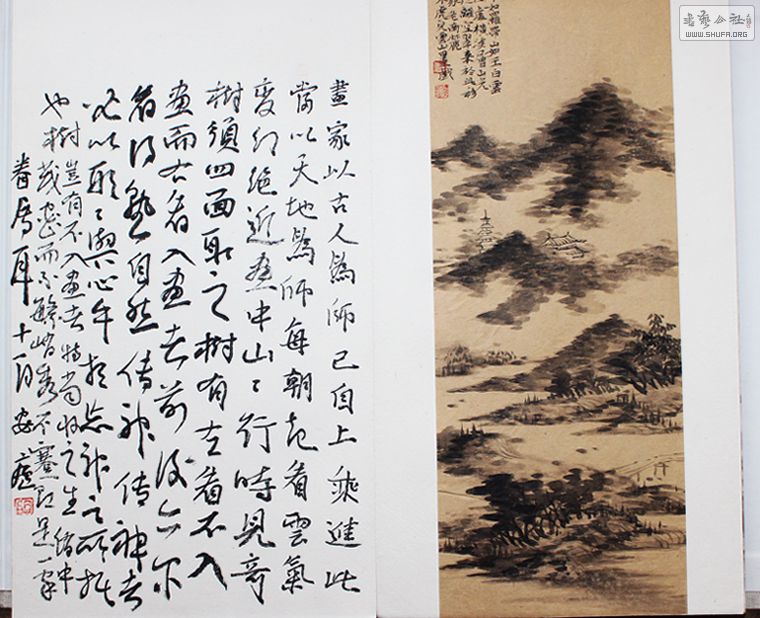 畫家以古人為師已自上乘進此
當以天地為師每朝起看雲氣
變幻絕近畫中山々行時見奇
樹須四面取之樹有左看不入
畫而右看入畫者前後亦爾
看得熟自然傳神傳神者
必以形々與心手相忘神之所托
也樹豈有不入畫者特當收之生綃中
茂密而不繁峭秀不蹇即是一家
眷屬耳 十一月
如羅帶山如玉白雲
書藝公社
WWW.SHUFA.ORG